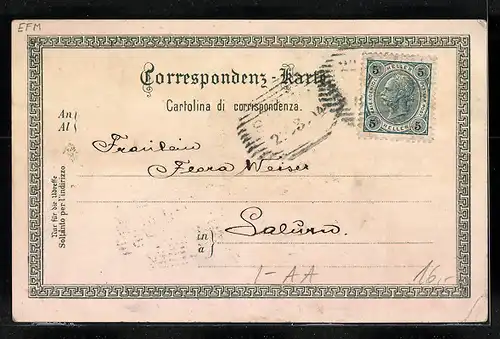 EFM
Correspondenz-Karte
Cartolina di corrispondenza.
5 HELLER 5
5 HELLER 5
An
Al
Fräulein
Flora Weiser
Nur für die Adresse
Soltanto per l'indirizzo
in
a
Salurn.
I-AA
16,-